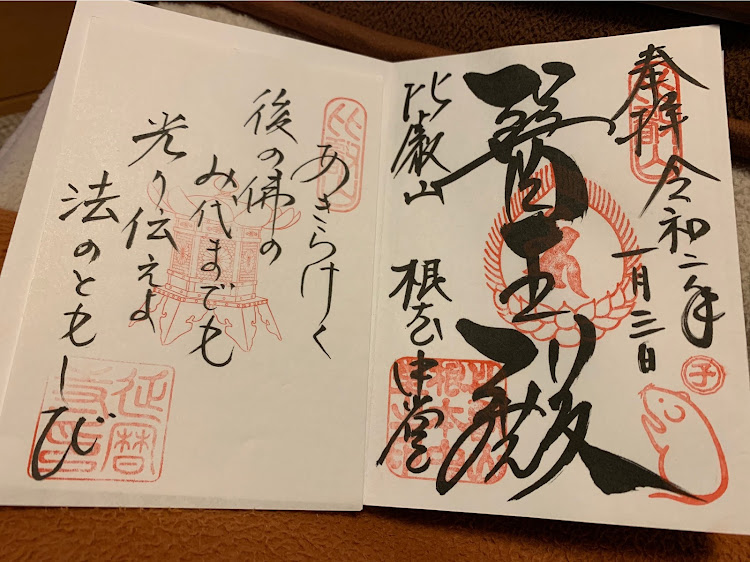 奉拝
令和二年
一月三日
子
醫王殿
比叡山
根本中堂
比叡山
あきらけく
後の佛の
み代までも
光り伝えよ
法のともしび
延暦
寺印